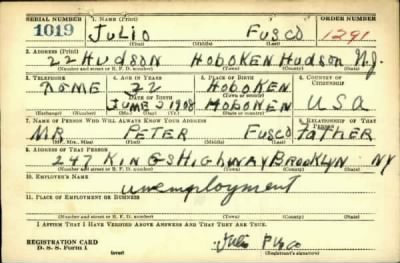 SERIAL NUMBER 1. NAME (Print) ORDER NUMBER
1019 JULIO FUSCO 1291
(First) (Middle) (Last)
2. ADDRESS (Print)
22 HUDSON HOBOKEN HUDSON N.J.
(Number and street or R. F. D. number) (Town) (County) (State)
3. TELEPHONE 4. AGE IN YEARS 5. PLACE OF BIRTH 6. COUNTRY OF CITIZENSHIP
NOME 32 HOBOKEN
JUNE 2 1908 HOBOKEN USA
(Exchange) (Number) (Mo.) (Day) (Yr.) (State or country)
7. NAME OF PERSON WHO WILL ALWAYS KNOW YOUR ADDRESS 8. RELATIONSHIP OF THAT PERSON
MR. PETER FUSCO FATHER
(Mr., Mrs., Miss) (First) (Middle) (Last)
9. ADDRESS OF THAT PERSON
247 KINGS HIGHWAY BROOKLYN NY
(Number and street or R. F. D. number) (Town) (County) (State)
10. EMPLOYER'S NAME
unemployment
11. PLACE OF EMPLOYMENT OR BUSINESS
(Number and street or R. F. D. number) (Town) (County) (State)
I AFFIRM THAT I HAVE VERIFIED ABOVE ANSWERS AND THAT THEY ARE TRUE.
REGISTRATION CARD
D. S. S. Form 1 (over) (Registrant's signature)